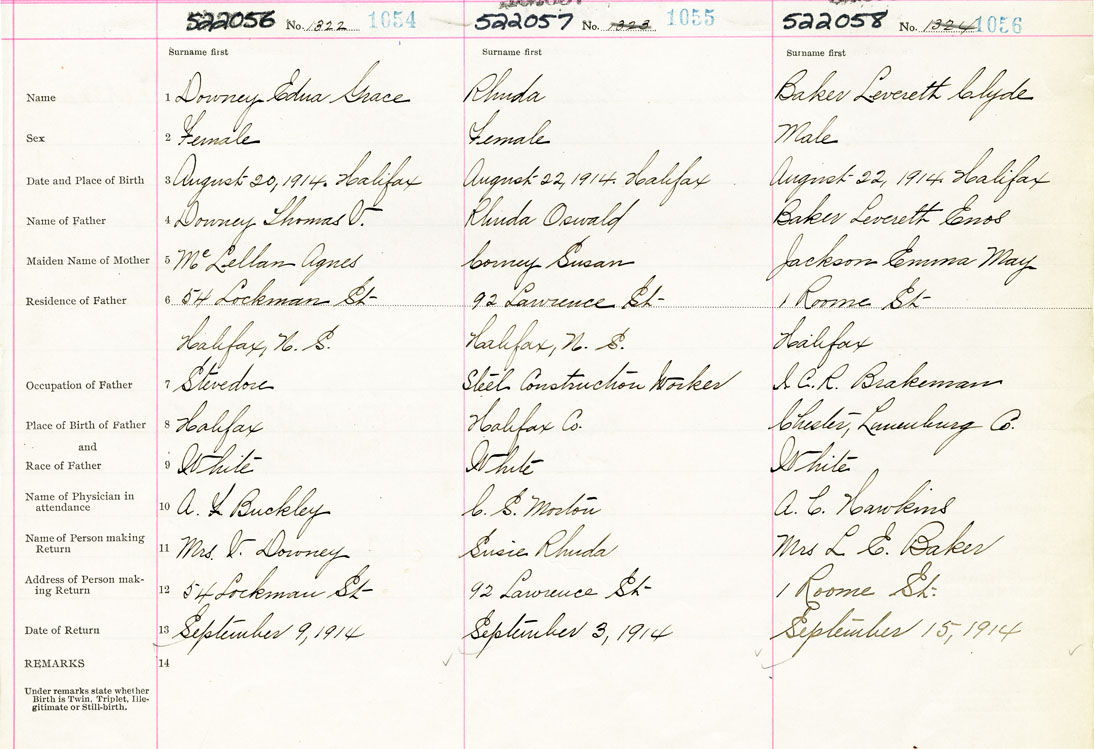 522056 No. 1322 1054 522057 No. 1323 1055 522058 No. 1324 1056
Surname first Surname first Surname first
Name 1 Downey Edna Grace Rhuda Baker Levereth Clyde
Sex 2 Female Female Male
Date and Place of Birth 3 August 20, 1914. Halifax August 22, 1914. Halifax August 22, 1914. Halifax
Name of Father 4 Downey Thomas V. Rhuda Oswald Baker Levereth Enos
Maiden Name of Mother 5 Mc Lellan Agnes Corney Susan Jackson Emma May
Residence of Father 6 54 Lockman St- 92 Lawrence St- 1 Roome St-
Halifax, N. S. Halifax, N. S. Halifax
Occupation of Father 7 Stevedore Steel Construction Worker I. C. R. Brakeman
Place of Birth of Father 8 Halifax Halifax Co. Chester, Lunenburg Co.
and
Race of Father 9 White White White
Name of Physician in
attendance 10 A. Buckley C. S. Morton A. C. Hawkins
Name of Person making
Return 11 Mrs. V. Downey Susie Rhuda Mrs L. E. Baker
Address of Person mak-
ing Return 12 54 Lockman St- 92 Lawrence St- 1 Roome St.
Date of Return 13 September 9, 1914 September 3, 1914 September 15, 1914
REMARKS 14
Under remarks state whether
Birth is Twin, Triplet, Ille-
gitimate or Still-birth.